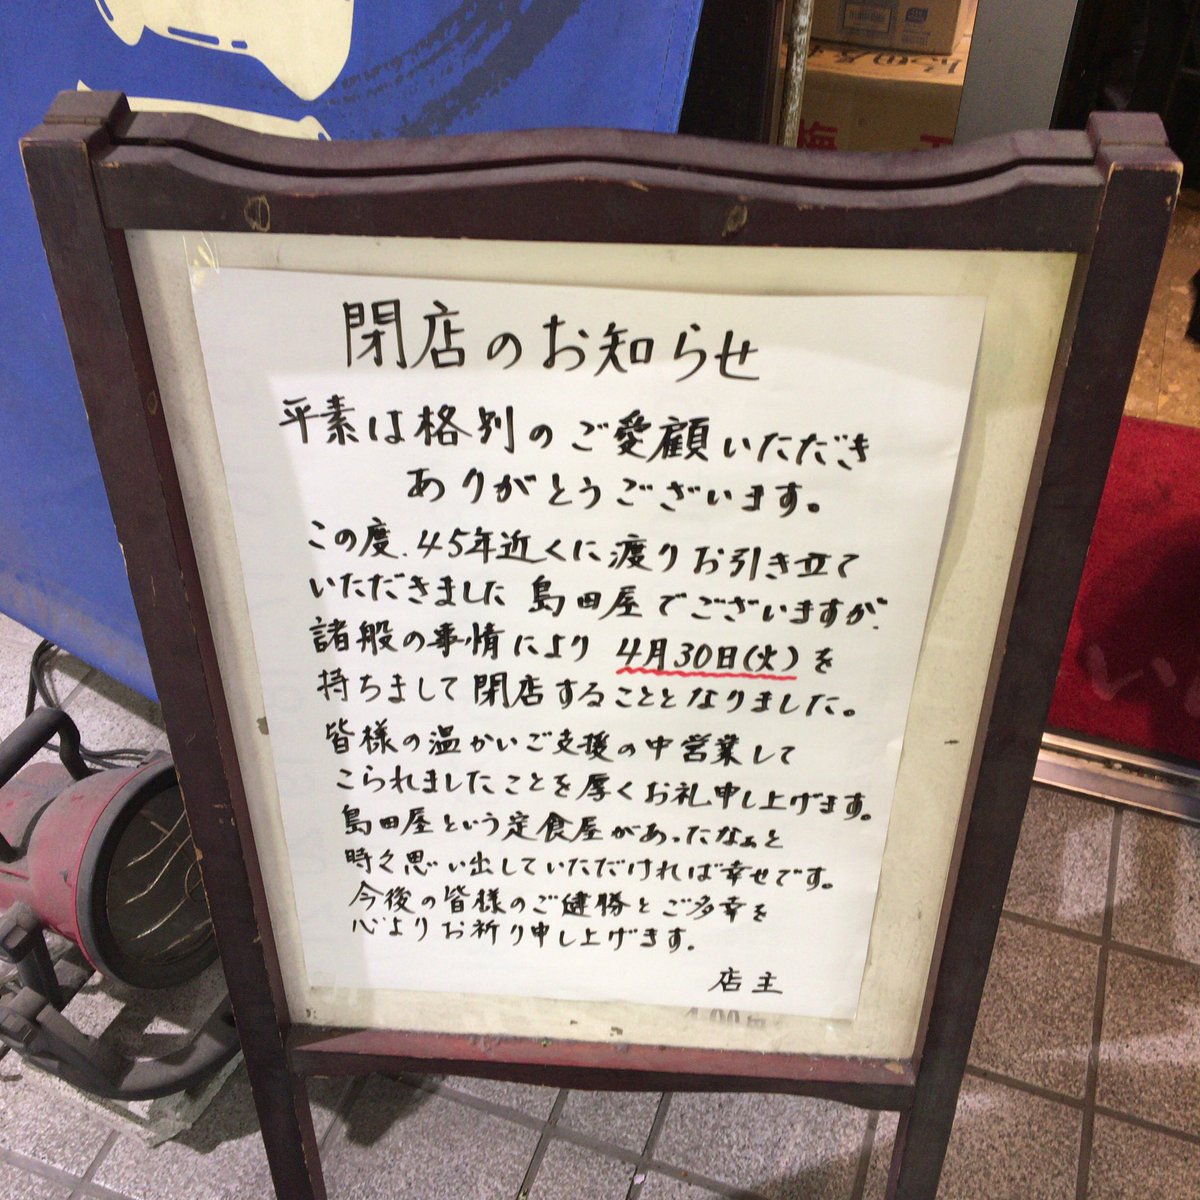 閉店のお知らせ
平素は格別のご愛顧いただき
ありがとうございます。
この度、45年近くに渡りお引き立て
いただきました島田屋でございますが、
諸般の事情により 4月30日(火)を
持ちまして閉店することとなりました。
皆様の温かいご支援の中営業して
こられましたことを厚くお礼申し上げます。
島田屋という定食屋があったなぁと
時々思い出していただければ幸せです。
今後の皆様のご健勝とご多幸を
心よりお祈り申し上げます。
店主